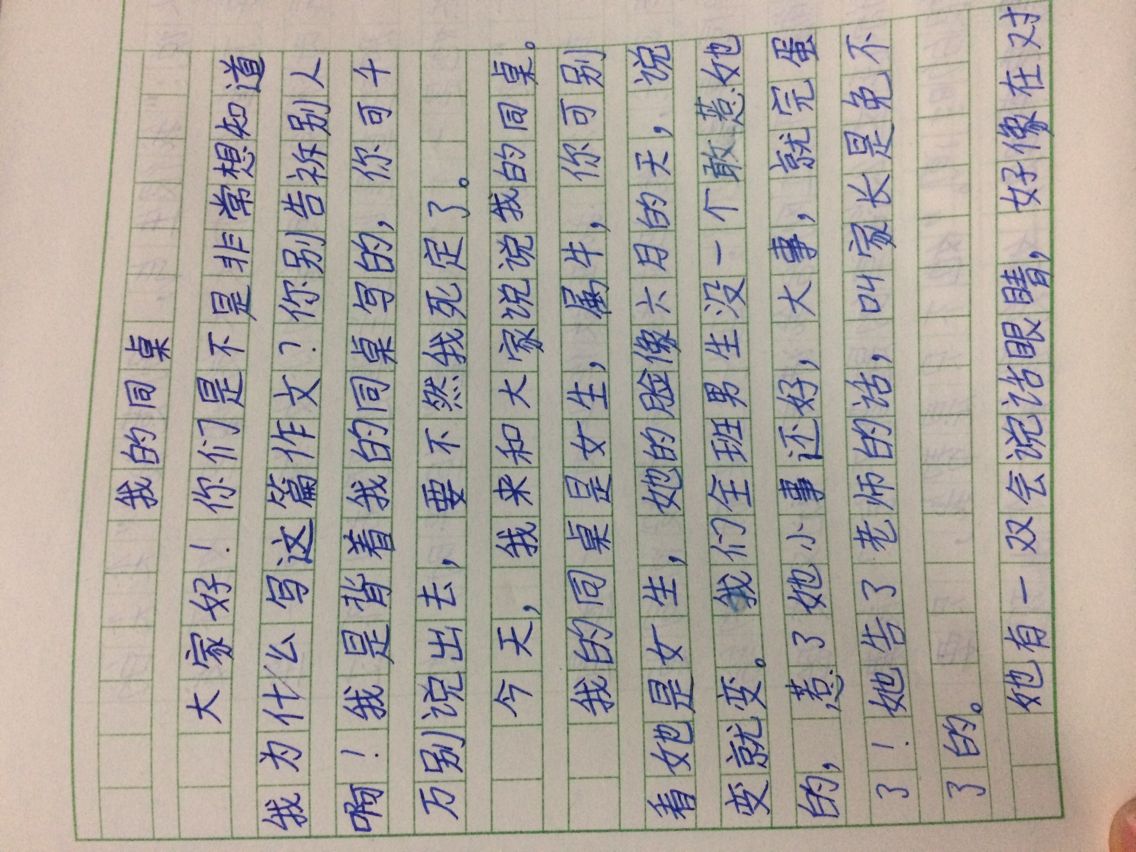 我的同桌
大家好！你们是不是非常想知道
我为什么写这篇作文？你别告诉别人
啊！我是背着我的同桌写的，你可千
万别说出去，要不然我死定了。
今天，我来和大家说说我的同桌。
我的同桌是女生，属牛，你可别
看她是女生，她的脸像六月的天，说
变就变。我们全班男生没一个敢惹她
的，惹了她小事还好，大事，就完蛋
了！她告了老师的话，叫家长是免不
了的。
她有一双会说话眼睛，好像在对